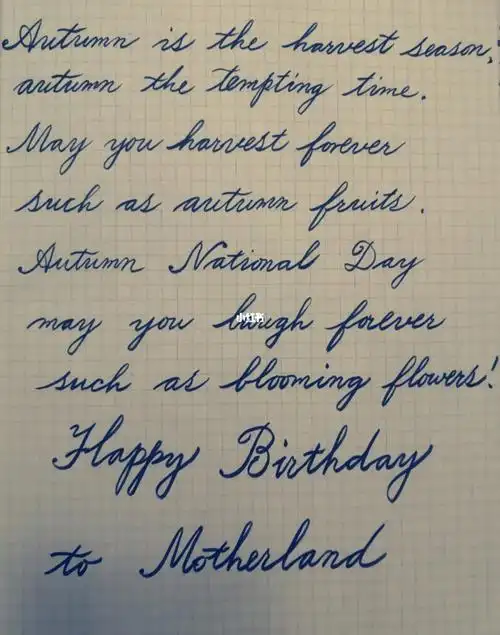 Autumn is the harvest season,
autumn the tempting time.
May you harvest forever
such as autumn fruits.
Autumn National Day
may you laugh forever
小红书
such as blooming flowers!
Happy Birthday
to Motherland